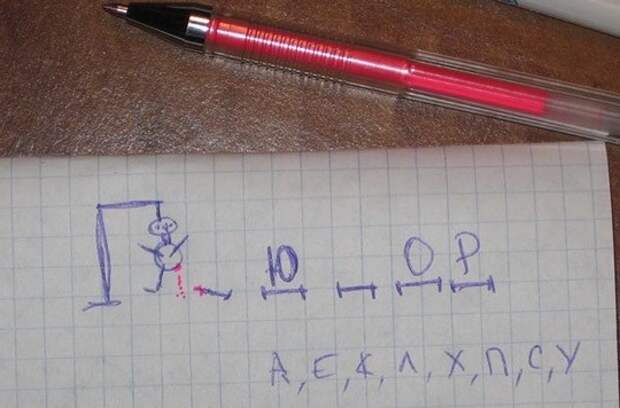 _ Ю _ О Р
А, Е, К, Л, Х, П, С, У